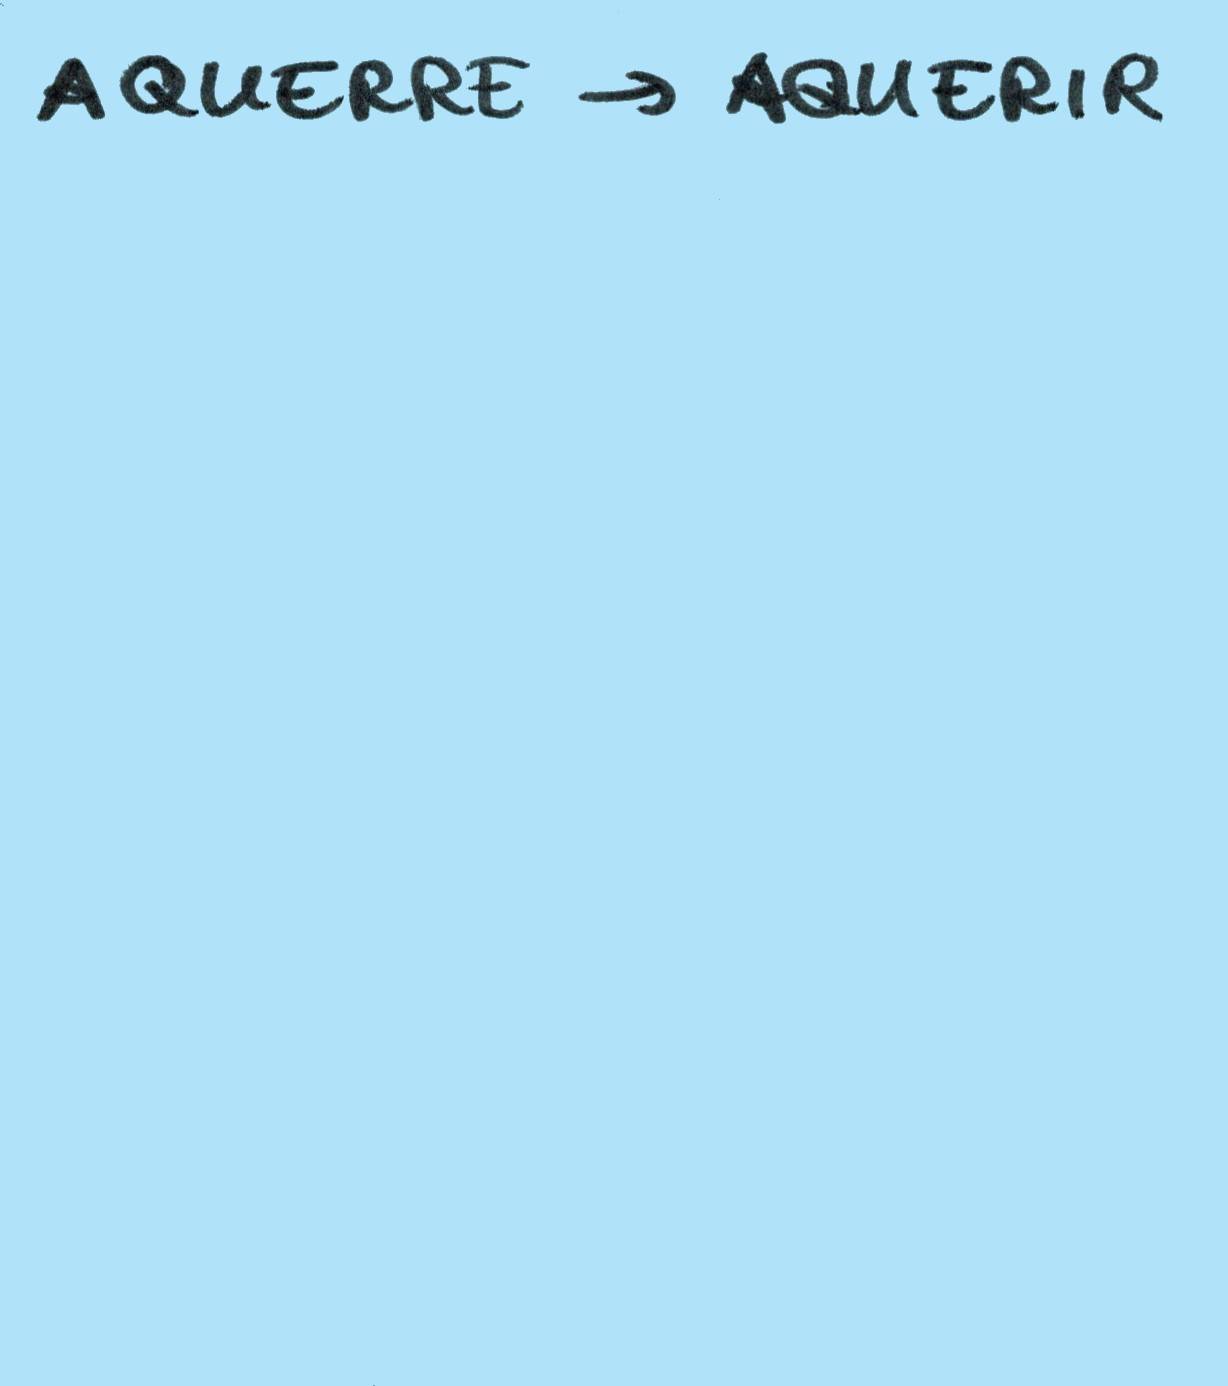 AQUERRE → AQUERIR